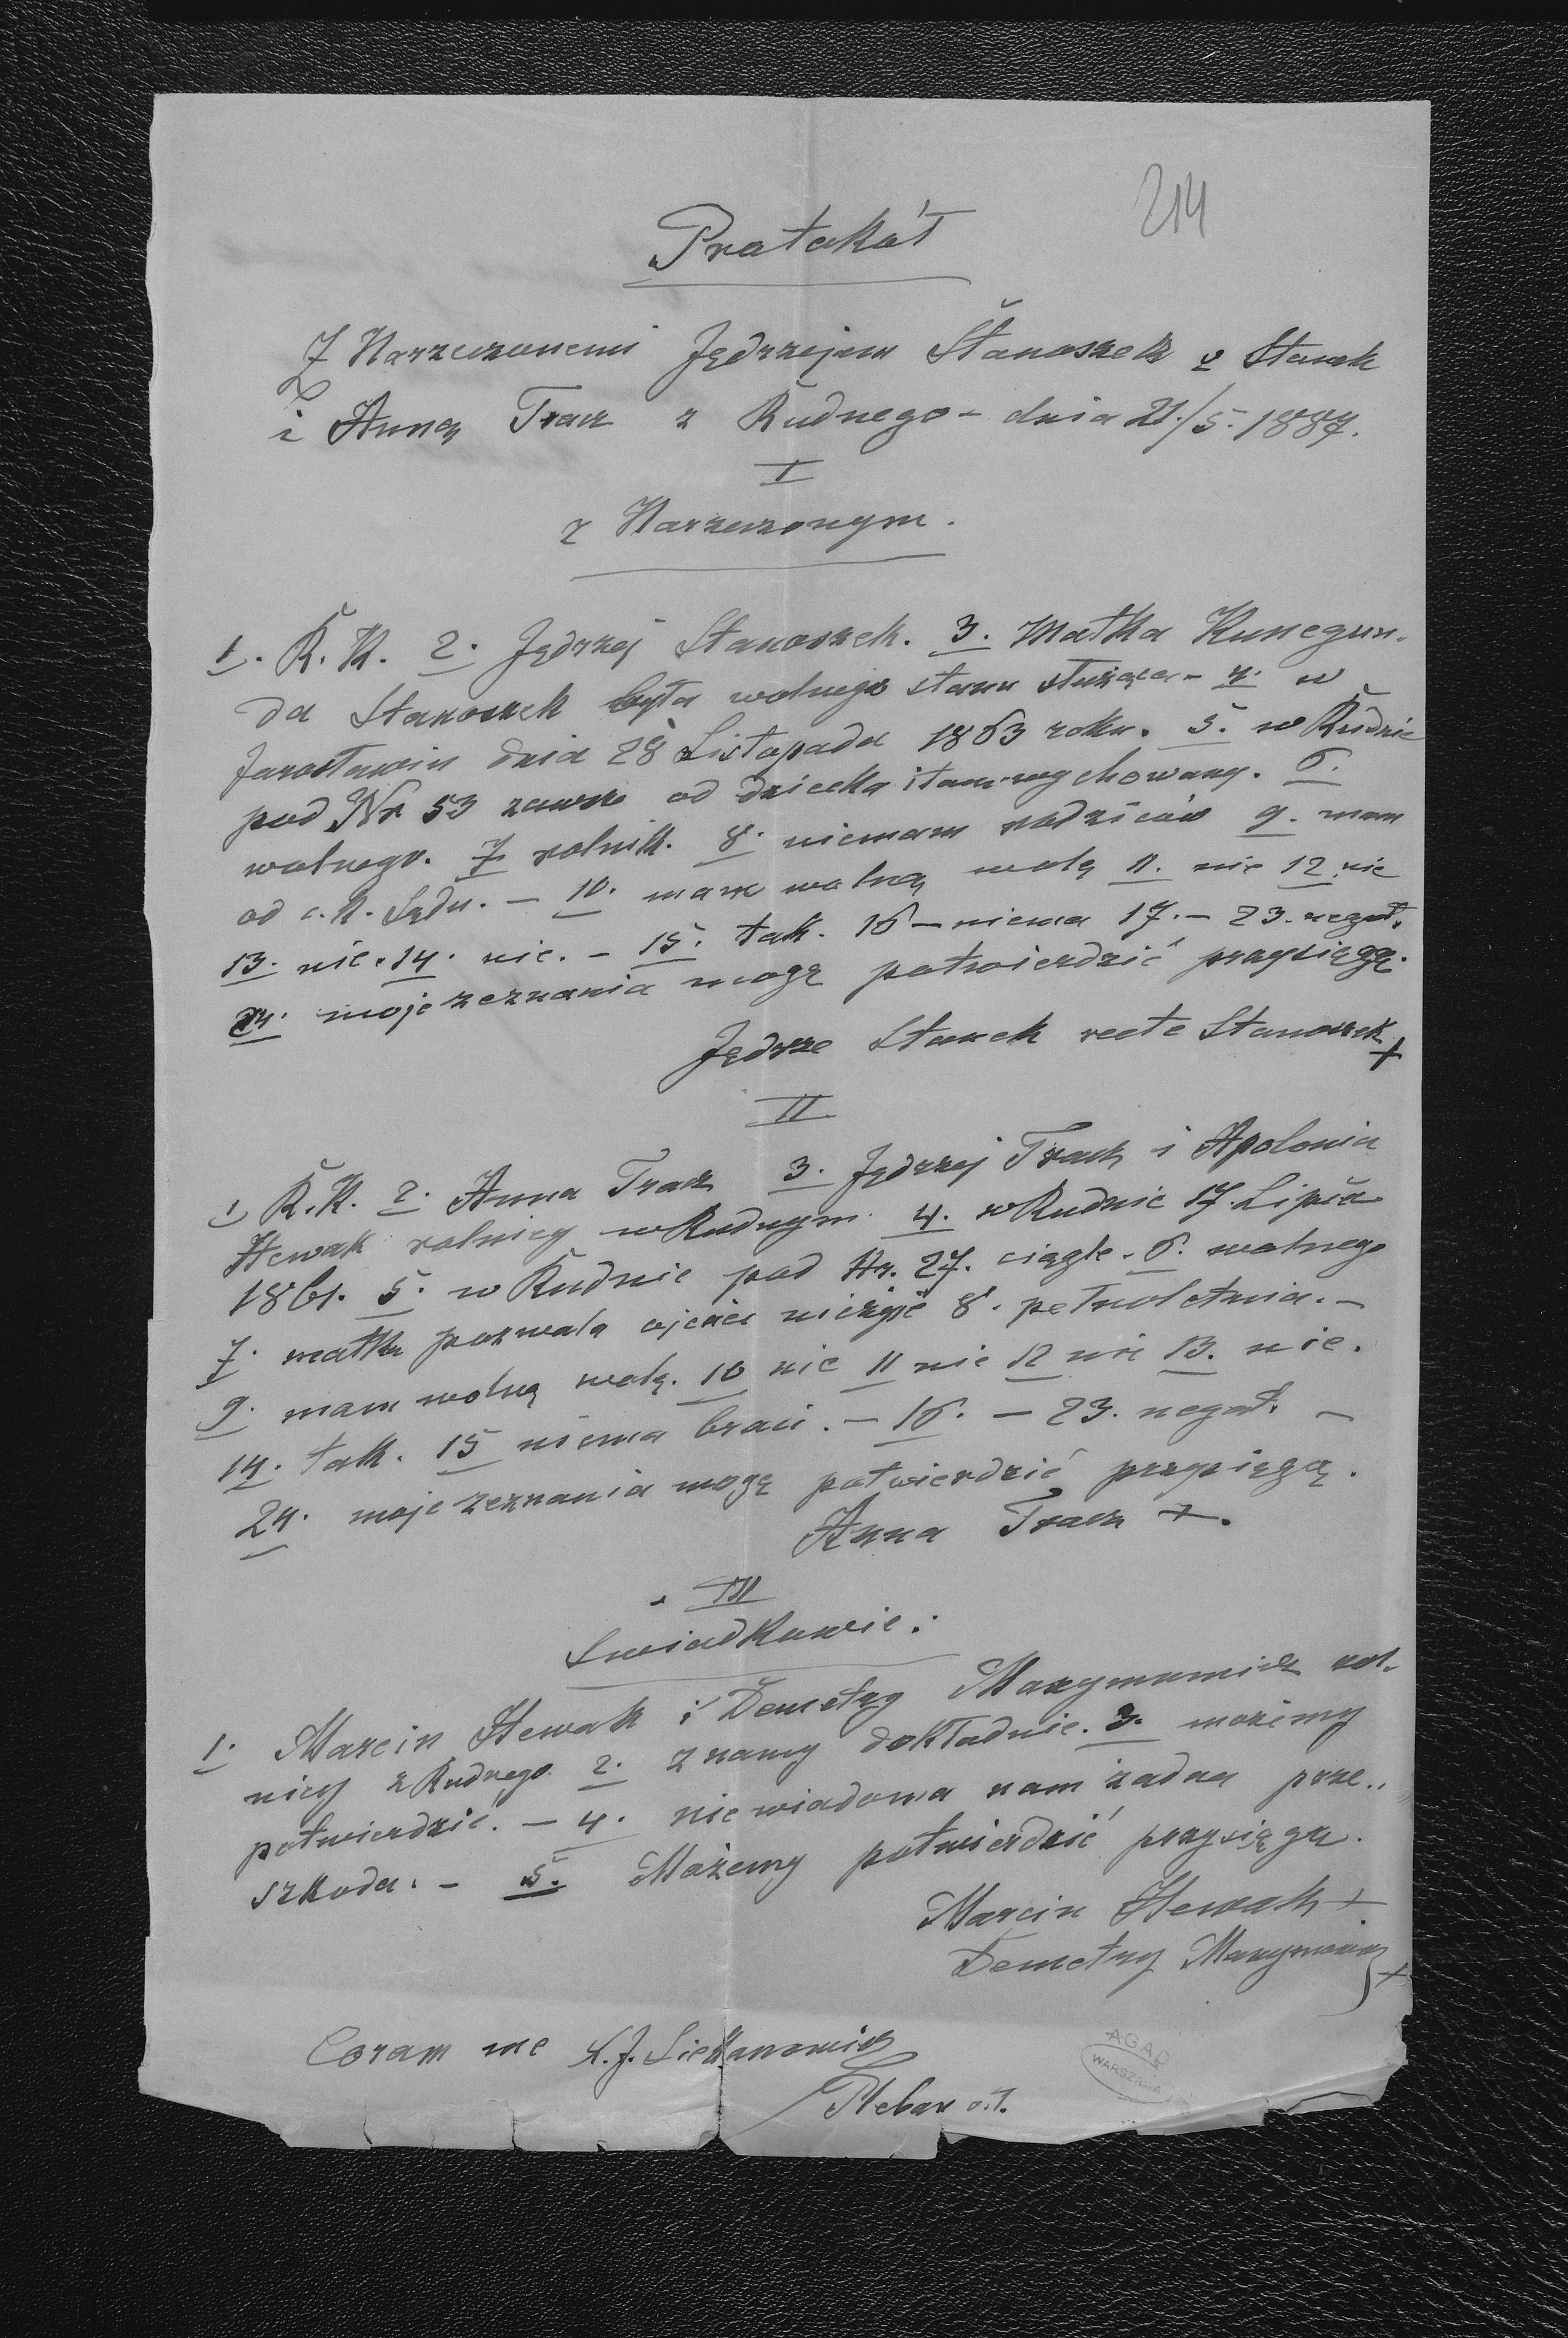 214
Protokół
Z Narzeczonemi Jędrzejem Stanoszek v Stanek
i Anną Tracz z Rudnego – dnia 21./5. 1887.
I
z Narzeczonym.
1. R. K. 2. Jędrzej Stanoszek. 3. Matka Kunegun-
da Stanoszek była wolnego stanu służąca – 4. w
Jarosławiu dnia 28 Listopada 1863 roku. 5. w Rudnie
pod Nr 53 zawsze od dziecka i tam wychowany. 6.
wolnego. 7 rolnik. 8. niemam rodziców 9. mam
od c. k. Sądu. – 10. mam wolną wolę 11. nie 12. nie
13. nie. 14. nie. – 15. tak. 16 – niema 17. – 23. negat.
24. moje zeznania mogę potwierdzić przysięgą.
Jędrze Stanek recte Stanoszek +
II
1 R. K. 2. Anna Tracz 3. Jędrzej Tracz i Apolonia
Hewak rolnicy w Rudnym. 4. w Rudnie 17. Lipca
1861. 5. w Rudnie pod Nr. 27. ciągle. 6. wolnego
7. matka pozwala ojciec nieżyje 8. pełnoletnia. –
9. mam wolną wolę. 10 nie 11 nie 12 nie 13. nie.
14. tak. 15 niema braci. – 16. – 23. negat. –
24. moje zeznania mogę potwierdzić przysięgą.
Anna Tracz +.
III
Swiadkowie:
1. Marcin Hewak i Demetry Maxymowicz rol-
nicy z Rudnego. 2. znamy dokładnie. 3. możemy
potwierdzić. – 4. nie wiadoma nam żadna prze-
szkoda. – 5. Możemy potwierdzić przysięgą.
Marcin Hewak +
Demetry Maxymowicz +
Coram me X. J. Siekanowicz
Pleban o.ł.
AGAD
WARSZAWA